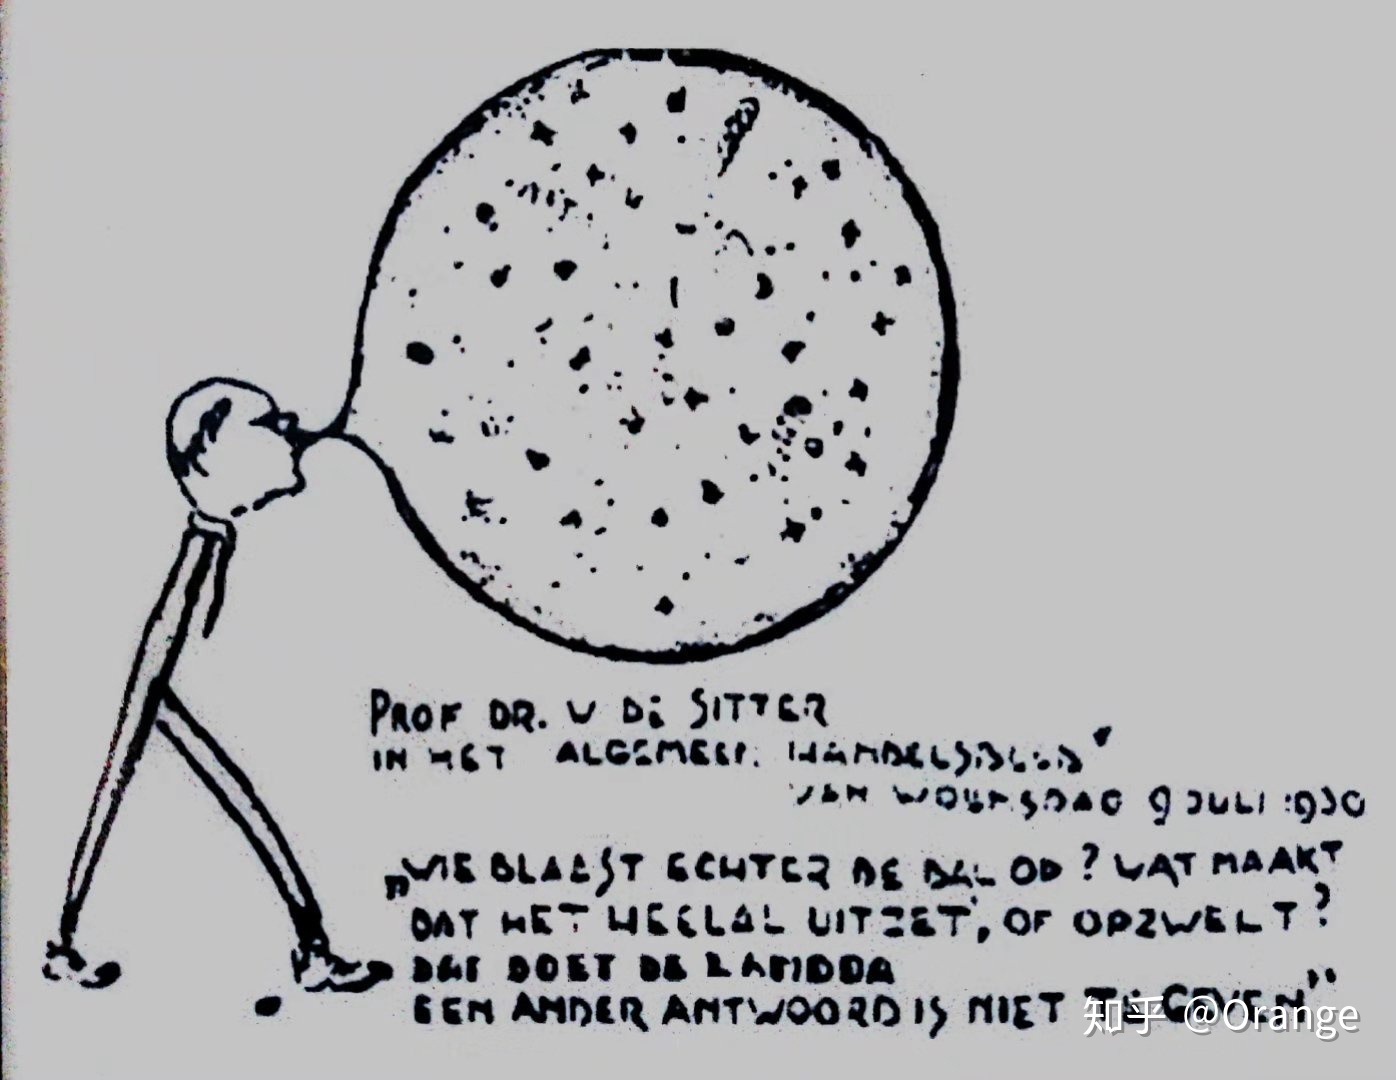 PROF DR. W DE SITTER
IN HET ALGEMEEN HANDELSBLAD"
VAN WOENSDAG 9 JULI 1930
„WIE BLAAST ECHTER DE BAL OP? WAT MAAKT
DAT HET HEELAL UITZET, OF OPZWELT?
DAT DOET DE LAMBDA
EEN ANDER ANTWOORD IS NIET TE GEVEN"
知乎 @Orange